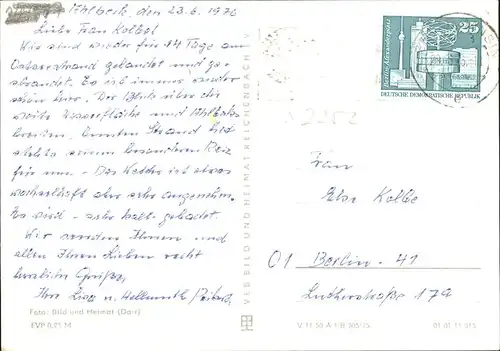 Ahlbeck, den 23.6.1976
Liebe Frau Kolbe!
Wir sind wieder für 14 Tage am
Ostseestrand gelandet und ge-
strandet. Es ist immer wieder
schön hier. Der Blick über die
weite Wasserfläche und Ahlbecks
breiten, bunten Strand hat
stets seinen besonderen Reiz
für uns. - Das Wetter ist etwas
wechselhaft aber sehr angenehm.
Es wird - sehr kalt - gebadet.
Wir senden Ihnen und
allen Ihren Lieben recht
herzliche Grüße,
Ihre u. Hellmuth
Foto: Bild und Heimat (Darr)
EVP 0,21 M
VEB BILD UND HEIMAT REICHENBACH V
Berlin-Alexanderplatz
25
DEUTSCHE DEMOKRATISCHE REPUBLIK
Frau
Else Kolbe
01 Berlin-41
Lutherstraße 17a
01 01 11 315